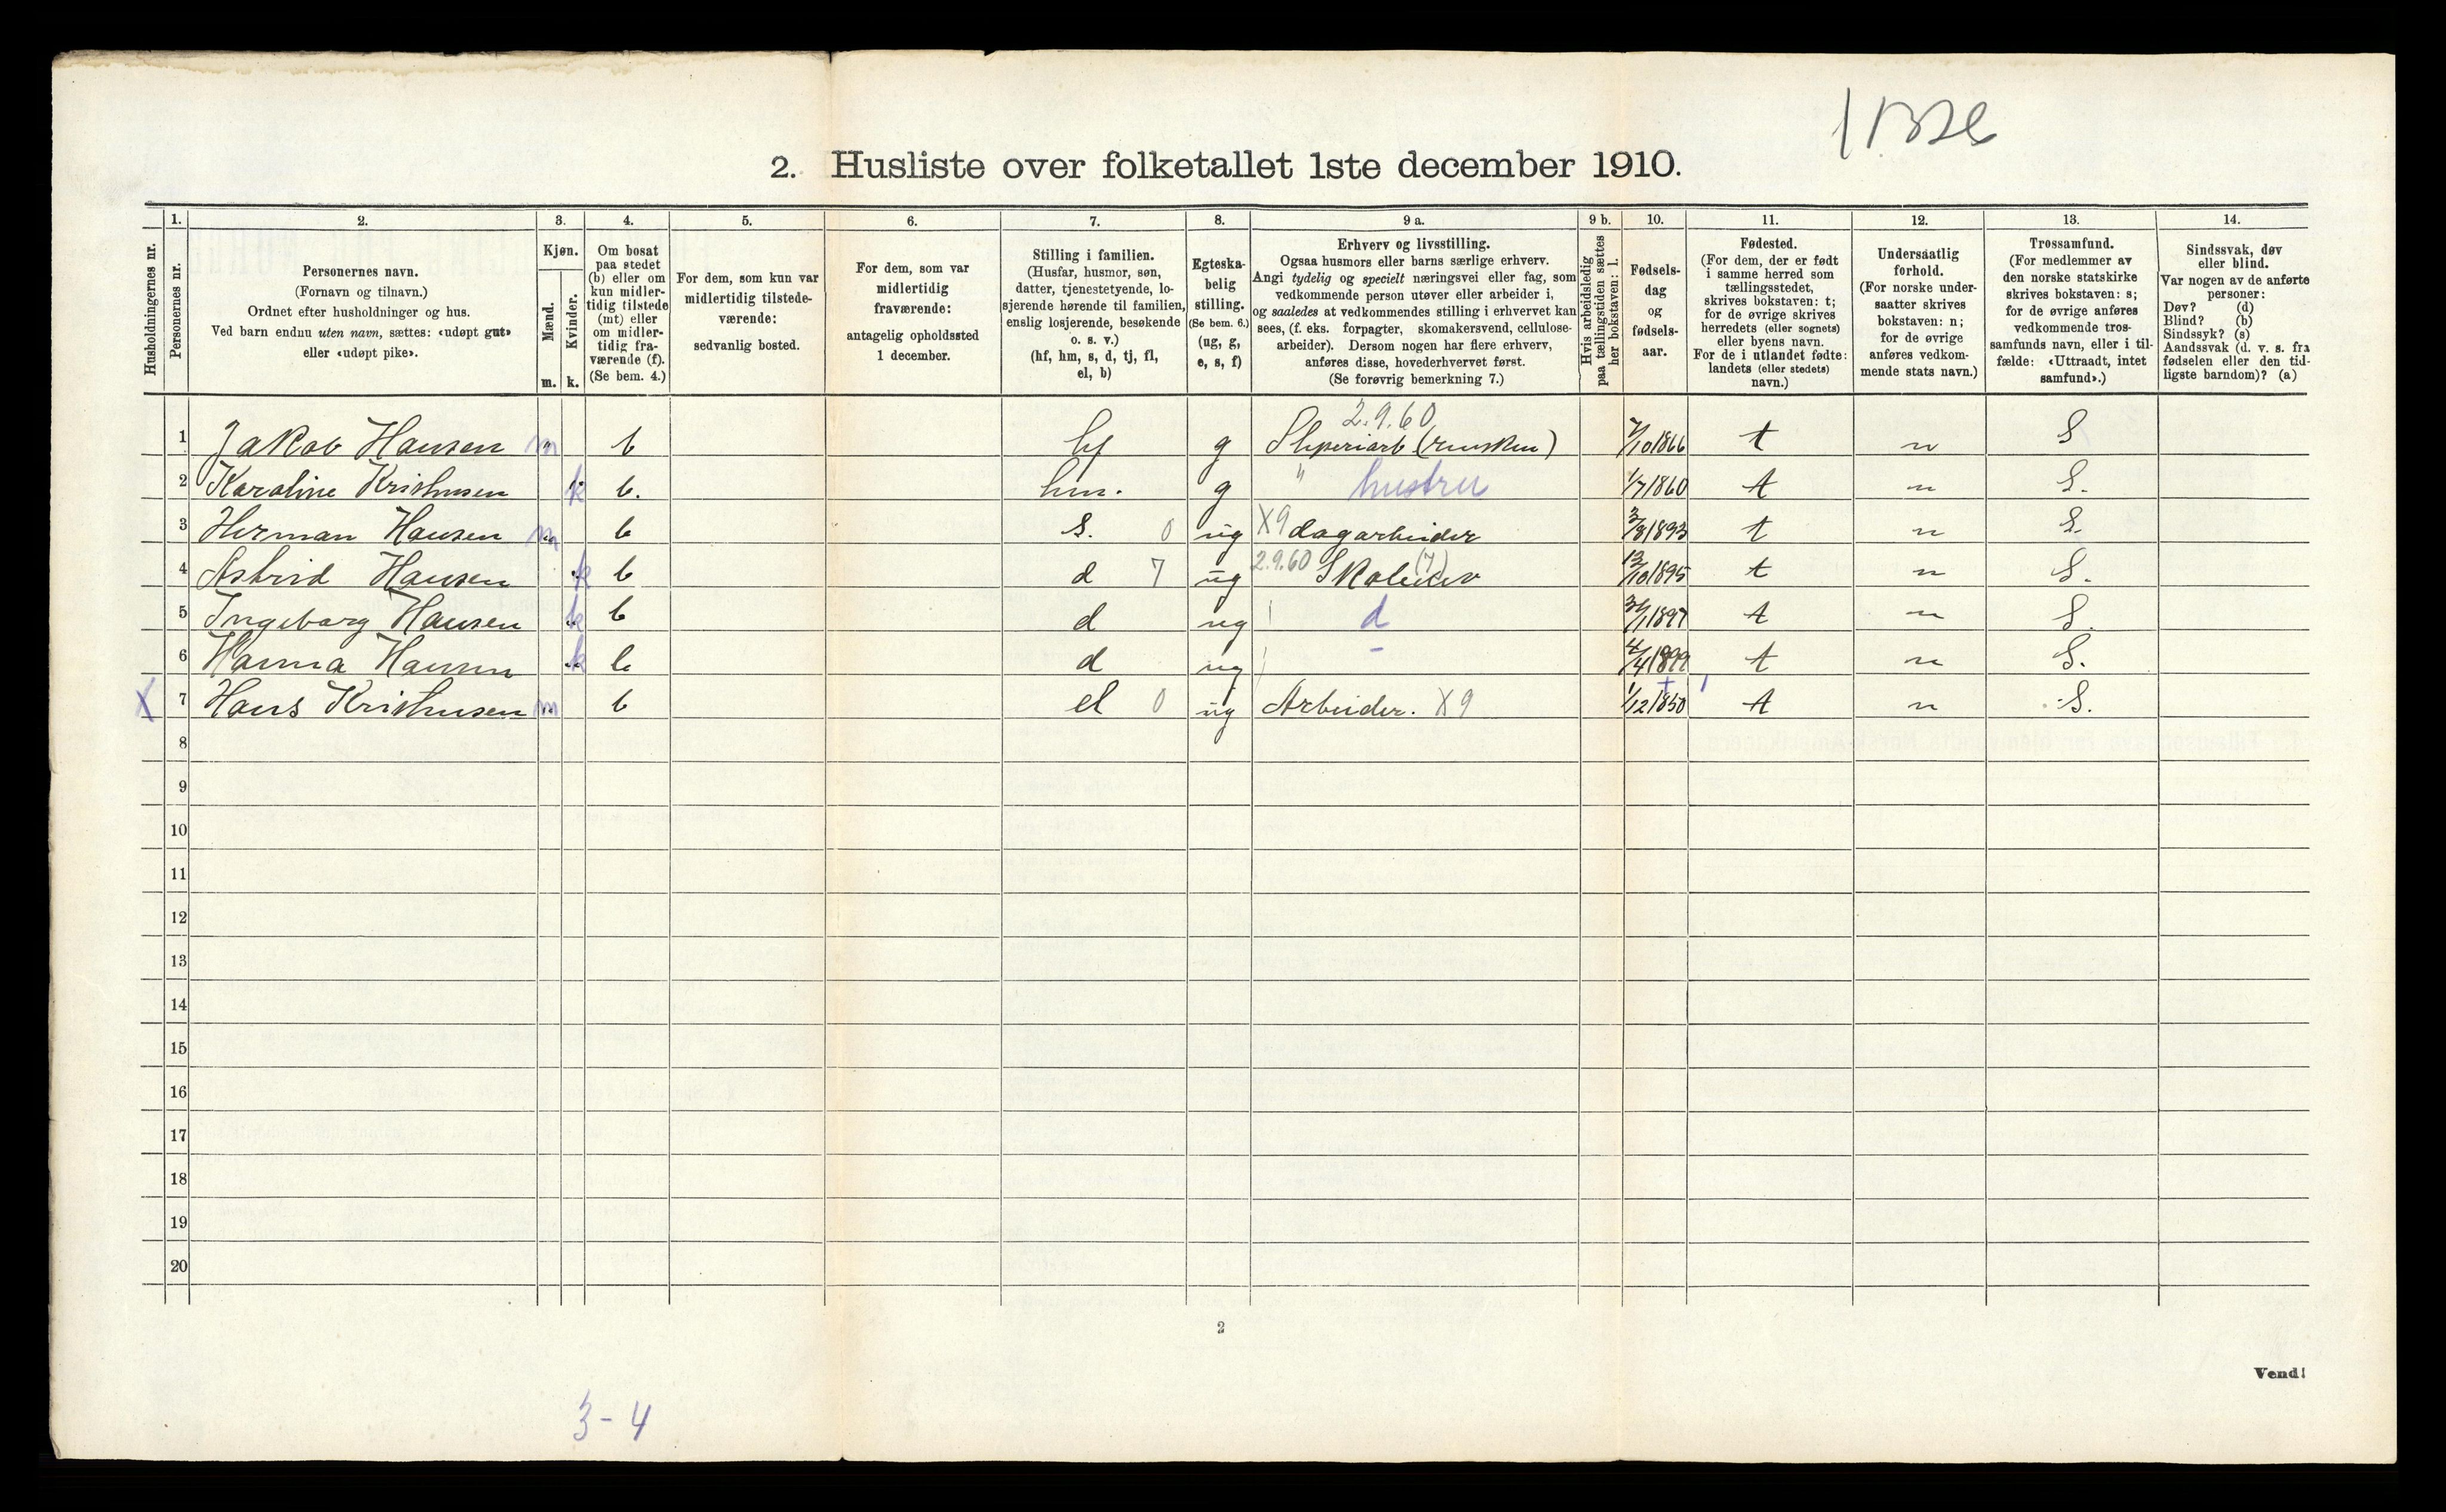 2. Husliste over folketallet 1ste december 1910.
Husholdningernes nr.
1. Personernes nr.
2. Personernes navn.
(Fornavn og tilnavn.)
Ordnet efter husholdninger og hus.
Ved barn endnu uten navn, sættes: «udøpt gut»
eller «udøpt pike».
3. Kjøn.
Mænd. m.
Kvinder. k.
4. Om bosat
paa stedet
(b) eller om
kun midler-
tidig tilstede
(mt) eller
om midler-
tidig fra-
værende (f).
(Se bem. 4.)
5. For dem, som kun var
midlertidig tilstede-
værende:
sedvanlig bosted.
6. For dem, som var
midlertidig
fraværende:
antagelig opholdssted
1 december.
7. Stilling i familien.
(Husfar, husmor, søn,
datter, tjenestetyende, lo-
sjerende hørende til familien,
enslig losjerende, besøkende
o. s. v.)
(hf, hm, s, d, tj, fl,
el, b)
8. Egteska-
belig
stilling.
(Se bem. 6.)
(ug, g,
e, s, f)
9 a. Erhverv og livsstilling.
Ogsaa husmors eller barns særlige erhverv.
Angi tydelig og specielt næringsvei eller fag, som
vedkommende person utøver eller arbeider i,
og saaledes at vedkommendes stilling i erhvervet kan
sees, (f. eks. forpagter, skomakersvend, cellulose-
arbeider). Dersom nogen har flere erhverv,
anføres disse, hovederhvervet først.
(Se forøvrig bemerkning 7.)
9 b. Hvis arbeidsledig
paa tællingstiden sættes
her bokstaven: l.
10. Fødsels-
dag
og
fødsels-
aar.
11. Fødested.
(For dem, der er født
i samme herred som
tællingsstedet,
skrives bokstaven: t;
for de øvrige skrives
herredets (eller sognets)
eller byens navn.
For de i utlandet fødte:
landets (eller stedets)
navn.)
12. Undersaatlig
forhold.
(For norske under-
saatter skrives
bokstaven: n;
for de øvrige
anføres vedkom-
mende stats navn.)
13. Trossamfund.
(For medlemmer av
den norske statskirke
skrives bokstaven: s;
for de øvrige anføres
vedkommende tros-
samfunds navn, eller i til-
fælde: «Uttraadt, intet
samfund».)
14. Sindssvak, døv
eller blind.
Var nogen av de anførte
personer:
Døv? (d)
Blind? (b)
Sindssyk? (s)
Aandssvak (d. v. s. fra
fødselen eller den tid-
ligste barndom)? (a)
2.9.60
1 Jakob Hansen m b hf g Sliperiarb 7/10 1866 t n S
2 Karoline Kristiansen k b. hm. g " hustru 1/7 1860 t n S.
3 Herman Hansen m b s. 0 ug X9 dagarbeider 3/8 1893 t n S.
4 Astrid Hansen k b d 7 ug 2.9.60 Skoleelev (7) 13/10 1895 t n S.
5 Ingeborg Hansen k b d ug d 1897 t n S.
6 Hanna Hansen k b d ug - 4/4 1899 t n S.
X 7 Hans Kristiansen m b el 0 ug Arbeider. X9 1/12 1850 t n S.
8
9
10
11
12
13
14
15
16
17
18
19
20
2
Vend!
3-4